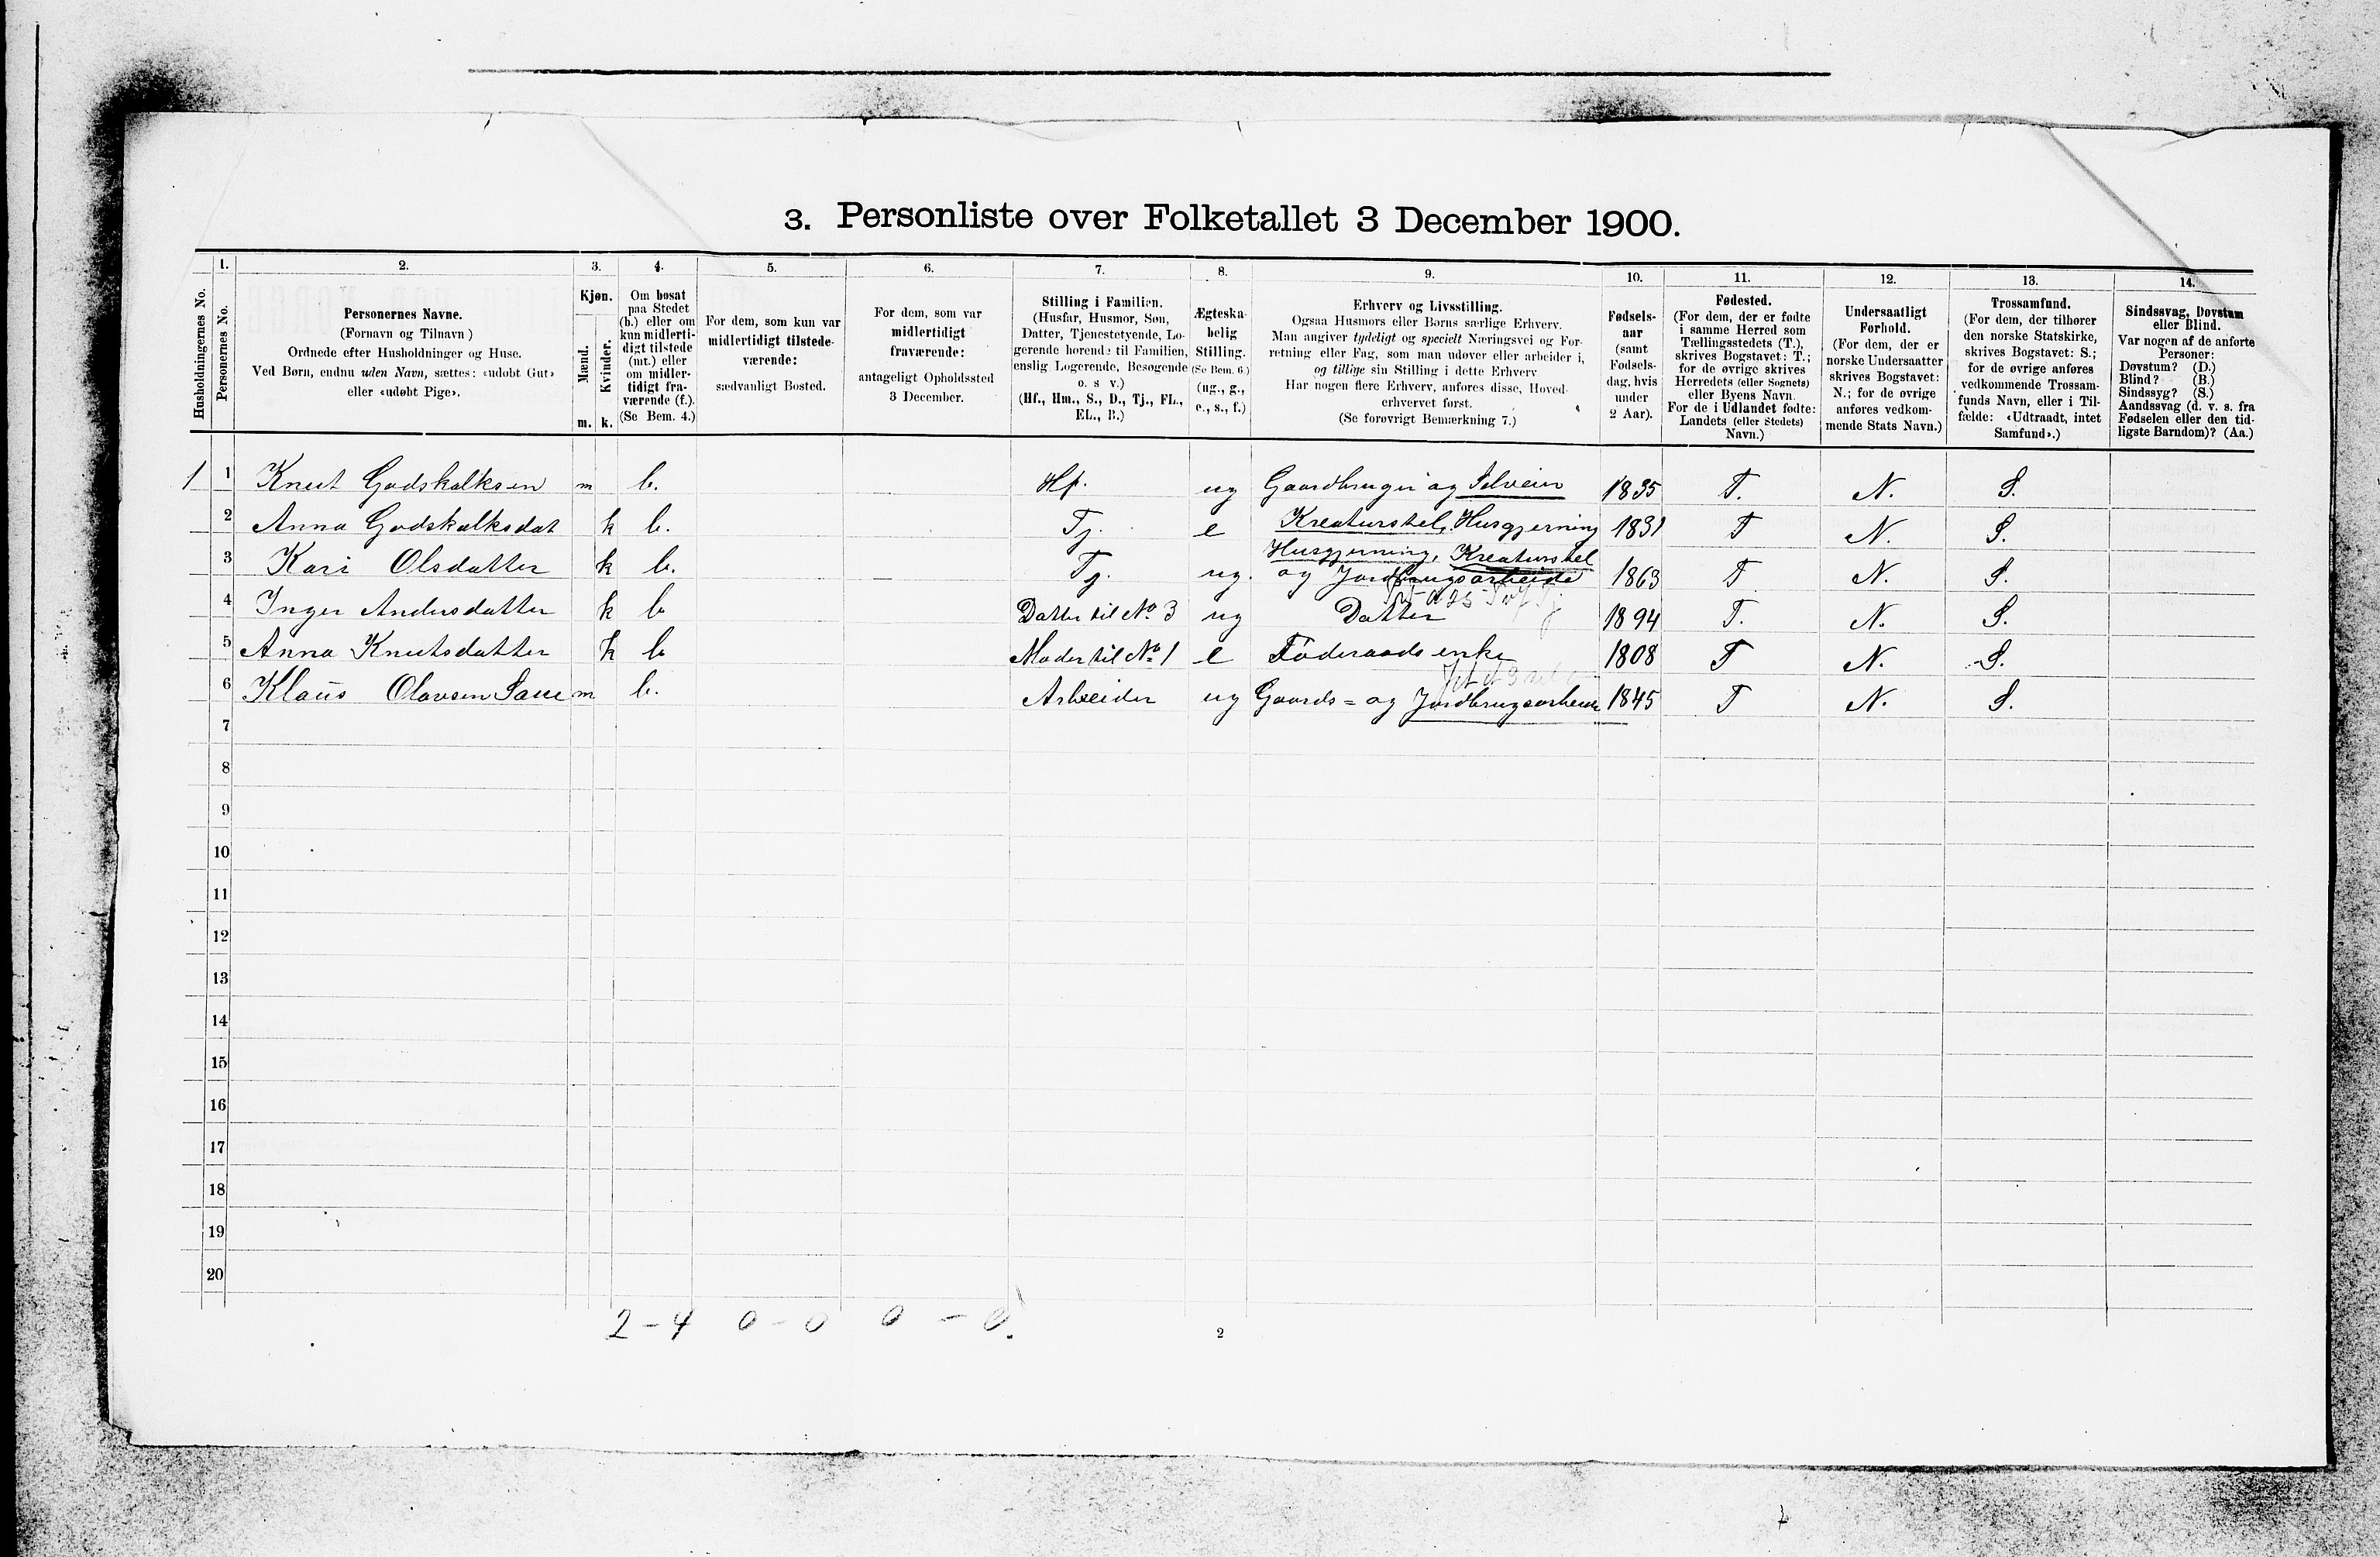 3. Personliste over Folketallet 3 December 1900.
1. 2. 3. 4. 5. 6. 7. 8. 9. 10. 11. 12. 13. 14.
Husholdningernes No.
Personernes No.
Personernes Navne.
(Fornavn og Tilnavn)
Ordnede efter Husholdninger og Huse.
Ved Børn, endnu uden Navn, sættes: «udøbt Gut»
eller «udøbt Pige».
Kjøn.
Mænd.
Kvinder.
m. k.
Om bosat
paa Stedet
(b.) eller om
kun midlerti-
digt tilstede
(mt.) eller
om midler-
tidigt fra-
værende (f.).
(Se Bem. 4.)
For dem, som kun var
midlertidigt tilstede-
værende:
sædvanligt Bosted.
For dem, som var
midlertidigt
fraværende:
antageligt Opholdssted
3 December.
Stilling i Familien.
(Husfar, Husmor, Søn,
Datter, Tjenestetyende, Lo-
gerende hørende til Familien,
enslig Logerende, Besøgende
o. s v.)
(Hf., Hm., S., D., Tj., FL.,
EL., B.)
Ægteska-
belig
Stilling.
(Se Bem. 6.)
(ug., g.,
e., s., f.)
Erhverv og Livsstilling.
Ogsaa Husmors eller Børns særlige Erhverv.
Man angiver tydeligt og specielt Næringsvei og For-
retning eller Fag, som man udøver eller arbeider i,
og tillige sin Stilling i dette Erhverv
Har nogen flere Erhverv, anføres disse, Hoved-
erhvervet først.
(Se forøvrigt Bemærkning 7.)
Fødsels-
aar
(samt
Fødsels-
dag, hvis
under
2 Aar).
Fødested.
(For dem, der er fødte
i samme Herred som
Tællingsstedets (T.),
skrives Bogstavet: T.;
for de øvrige skrives
Herredets (eller Sognets)
eller Byens Navn.
For de i Udlandet fødte:
Landets (eller Stedets)
Navn.)
Undersaatligt
Forhold.
(For dem, der er
norske Undersaatter
skrives Bogstavet:
N.; for de øvrige
anføres vedkom-
mende Stats Navn.)
Trossamfund.
(For dem, der tilhører
den norske Statskirke,
skrives Bogstavet: S.;
for de øvrige anføres
vedkommende Trossam-
funds Navn, eller i Til-
fælde: «Udtraadt, intet
Samfund».)
Sindssvag, Døvstum
eller Blind.
Var nogen af de anførte
Personer:
Døvstum? (D.)
Blind? (B.)
Sindssyg? (S.)
Aandssvag (d. v. s. fra
Fødselen eller den tid-
ligste Barndom)? (Aa.)
1 1 Knut Godskalksen m b. Hf. ug Gaardbruger og Selveier 1835 T. N. S.
2 Anna Godskalksdat k b. Tj. e Kreaturstel, Husgjerning 1831 T N. S.
3 Kari Olsdatter k b. Tj. ug. Husgjerning, Kreaturstel
og Jordbrugsarbeide 1863 T N. S.
4 Inger Andersdatter k b Datter til No 3 ug Datter 1894 T. N. S.
5 Anna Knutsdatter k b Moder til No 1 e Føderaadsenke 1808 T N. S.
6 Klaus Olavsen Saue m b. Arbeider ug Gaards= og Jordbrugsarbeide 1845 T N. S.
7
8
9
10
11
12
13
14
15
16
17
18
19
20
2 - 4 0 - 0 0 - 0.
2